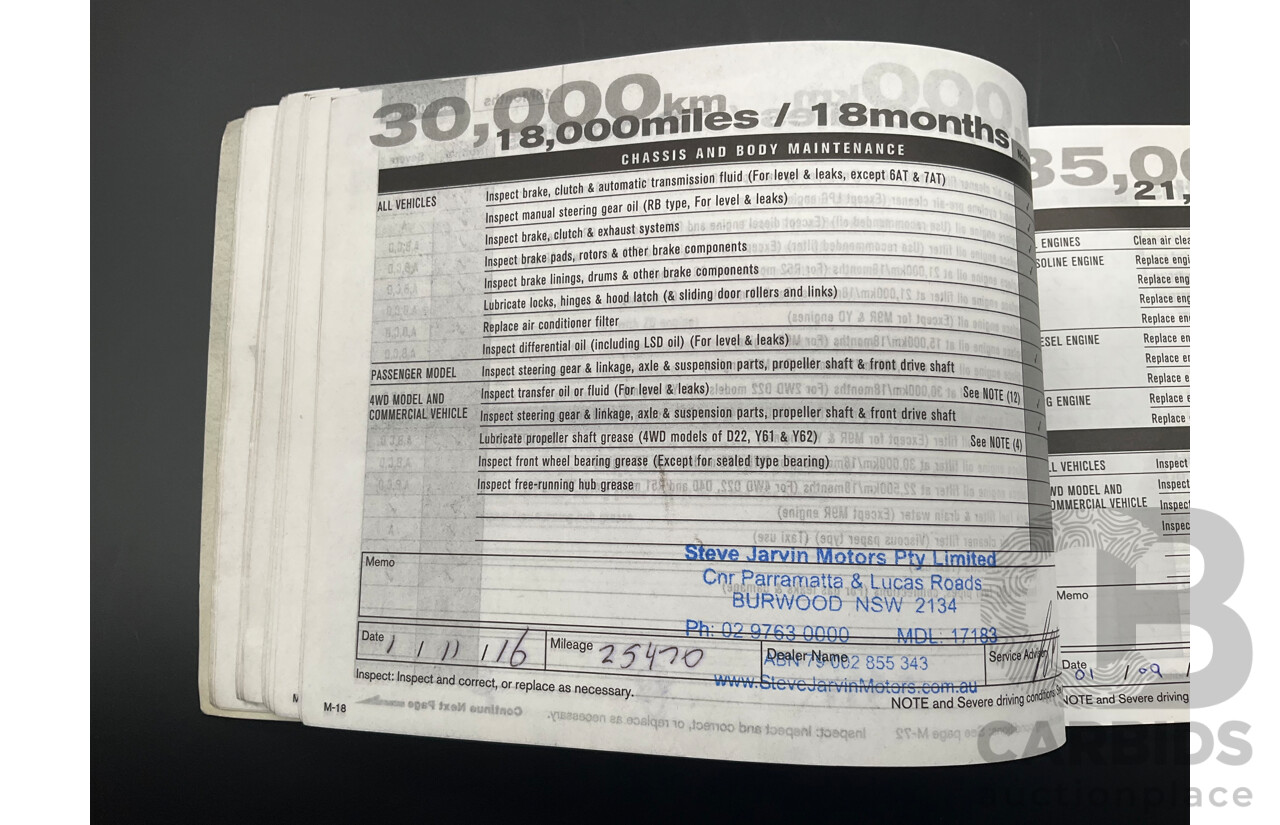 30,000km
18,000miles / 18months
CHASSIS AND BODY MAINTENANCE
ALL VEHICLES
Inspect brake, clutch & automatic transmission fluid (For level & leaks, except 6AT & 7AT)
Inspect manual steering gear oil (RB type, For level & leaks)
Inspect brake, clutch & exhaust systems
Inspect brake pads, rotors & other brake components
Inspect brake linings, drums & other brake components
Lubricate locks, hinges & hood latch (& sliding door rollers and links)
Replace air conditioner filter
Inspect differential oil (including LSD oil) (For level & leaks)
PASSENGER MODEL
Inspect steering gear & linkage, axle & suspension parts, propeller shaft & front drive shaft
4WD MODEL AND
COMMERCIAL VEHICLE
Inspect transfer oil or fluid (For level & leaks) See NOTE (12)
Inspect steering gear & linkage, axle & suspension parts, propeller shaft & front drive shaft
Lubricate propeller shaft grease (4WD models of D22, Y61 & Y62) See NOTE (4)
Inspect front wheel bearing grease (Except for sealed type bearing)
Inspect free-running hub grease
Memo
Steve Jarvin Motors Pty Limited
Cnr Parramatta & Lucas Roads
BURWOOD NSW 2134
Ph: 02 9763 0000 MDL: 17183
ABN 79 002 855 343
www.SteveJarvinMotors.com.au
Date 1 / 11 / 16
Mileage 25470
Dealer Name
Service Advi
Inspect: Inspect and correct, or replace as necessary.
NOTE and Severe driving condi
M-18
35,0
21,
ENGINES
Clean air clea
SOLINE ENGINE
Replace engi
Replace eng
Replace eng
Replace en
ESEL ENGINE
Replace en
Replace er
Replace e
G ENGINE
Replace e
Replace
LL VEHICLES
Inspect
WD MODEL AND
OMMERCIAL VEHICLE
Inspect
Inspec
Inspec
Memo
Date 01 / 09 /
NOTE and Severe driving
CARBIDS
auctionplace